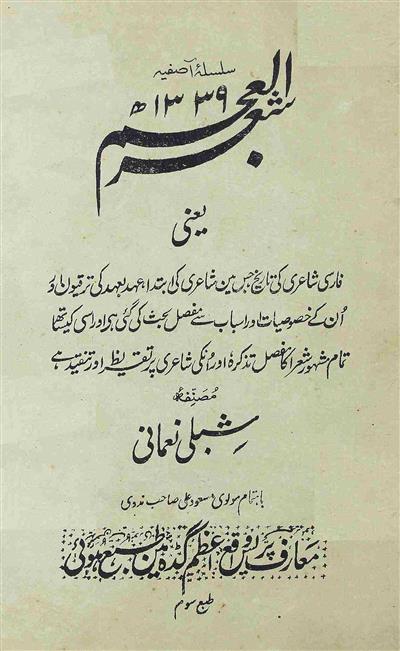 سلسلۂ آصفیہ
شعر العجم
۱۳۳۹ھ
یعنی
فارسی شاعری کی تاریخ جس مین شاعری کی ابتدا، عہد بعہد کی ترقیون اور
اُن کے خصوصیات اور اسباب سے مفصل بحث کی گئی ہی اور اسی کیساتھ
تمام مشہور شعرا کا مفصل تذکرہ اور اُنکی شاعری پر تقریظ اور تنقید ہے
مُصنّفۂ
شبلی نعمانی
باہتمام مولوی مسعود علی صاحب ندوی
معارف پریس واقع اعظم گڈہ مین طبع ہوئی
طبع سوم